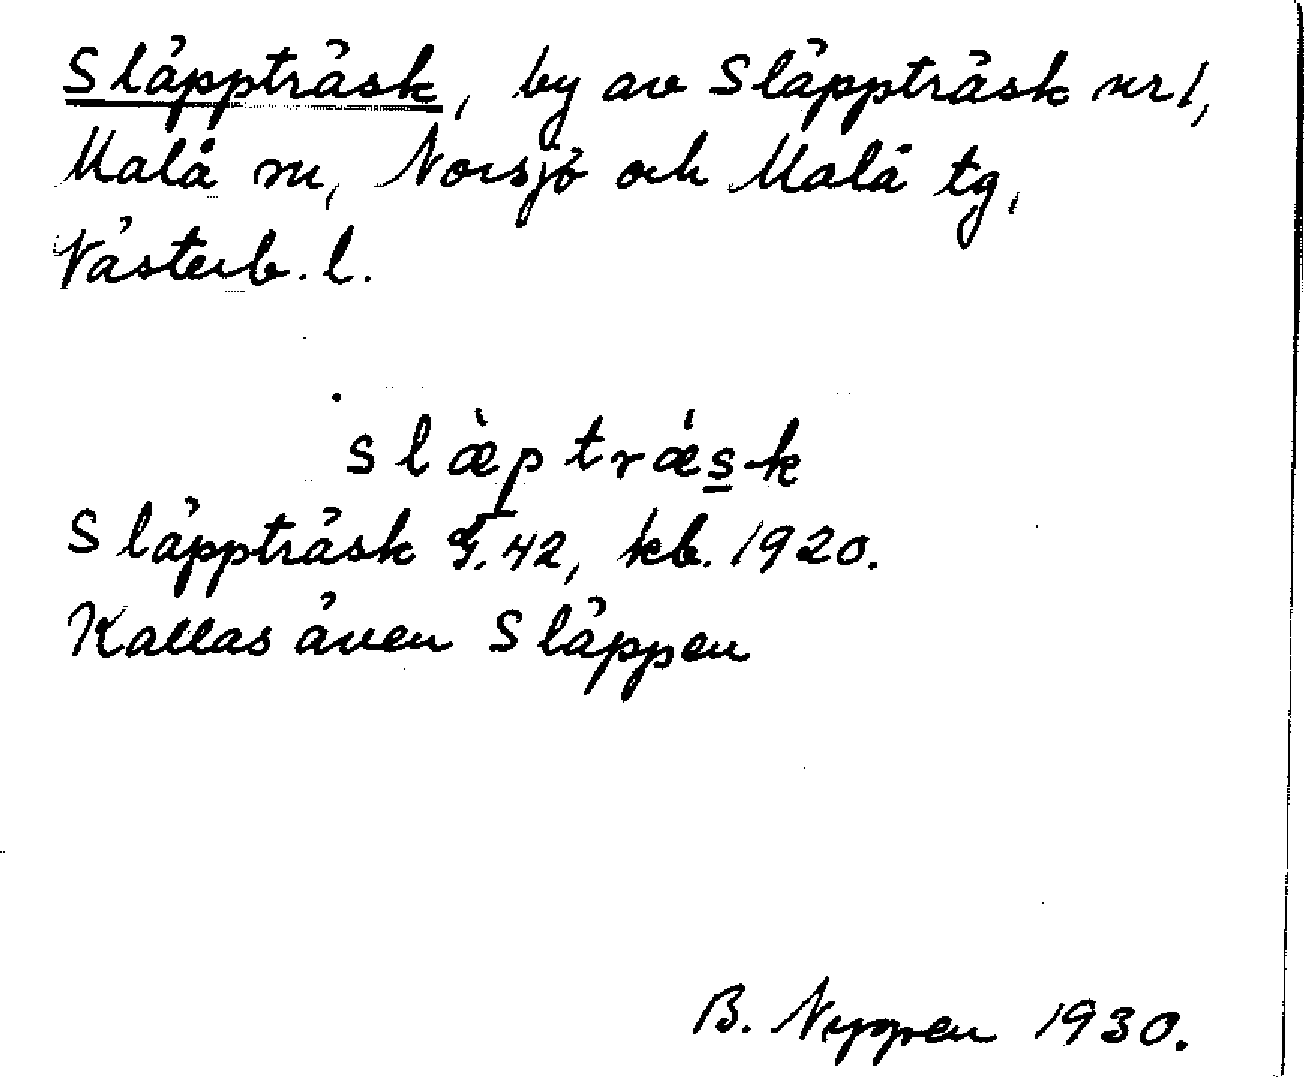 Släppträsk, by av Släppträsk nr 1,
Malå sn, Norsjö och Malå tg,
Västerb. l.
slæ̀ptrǽs̲k
Släppträsk 42, kb. 1920.
Kallas även Släppen
B. 1930.